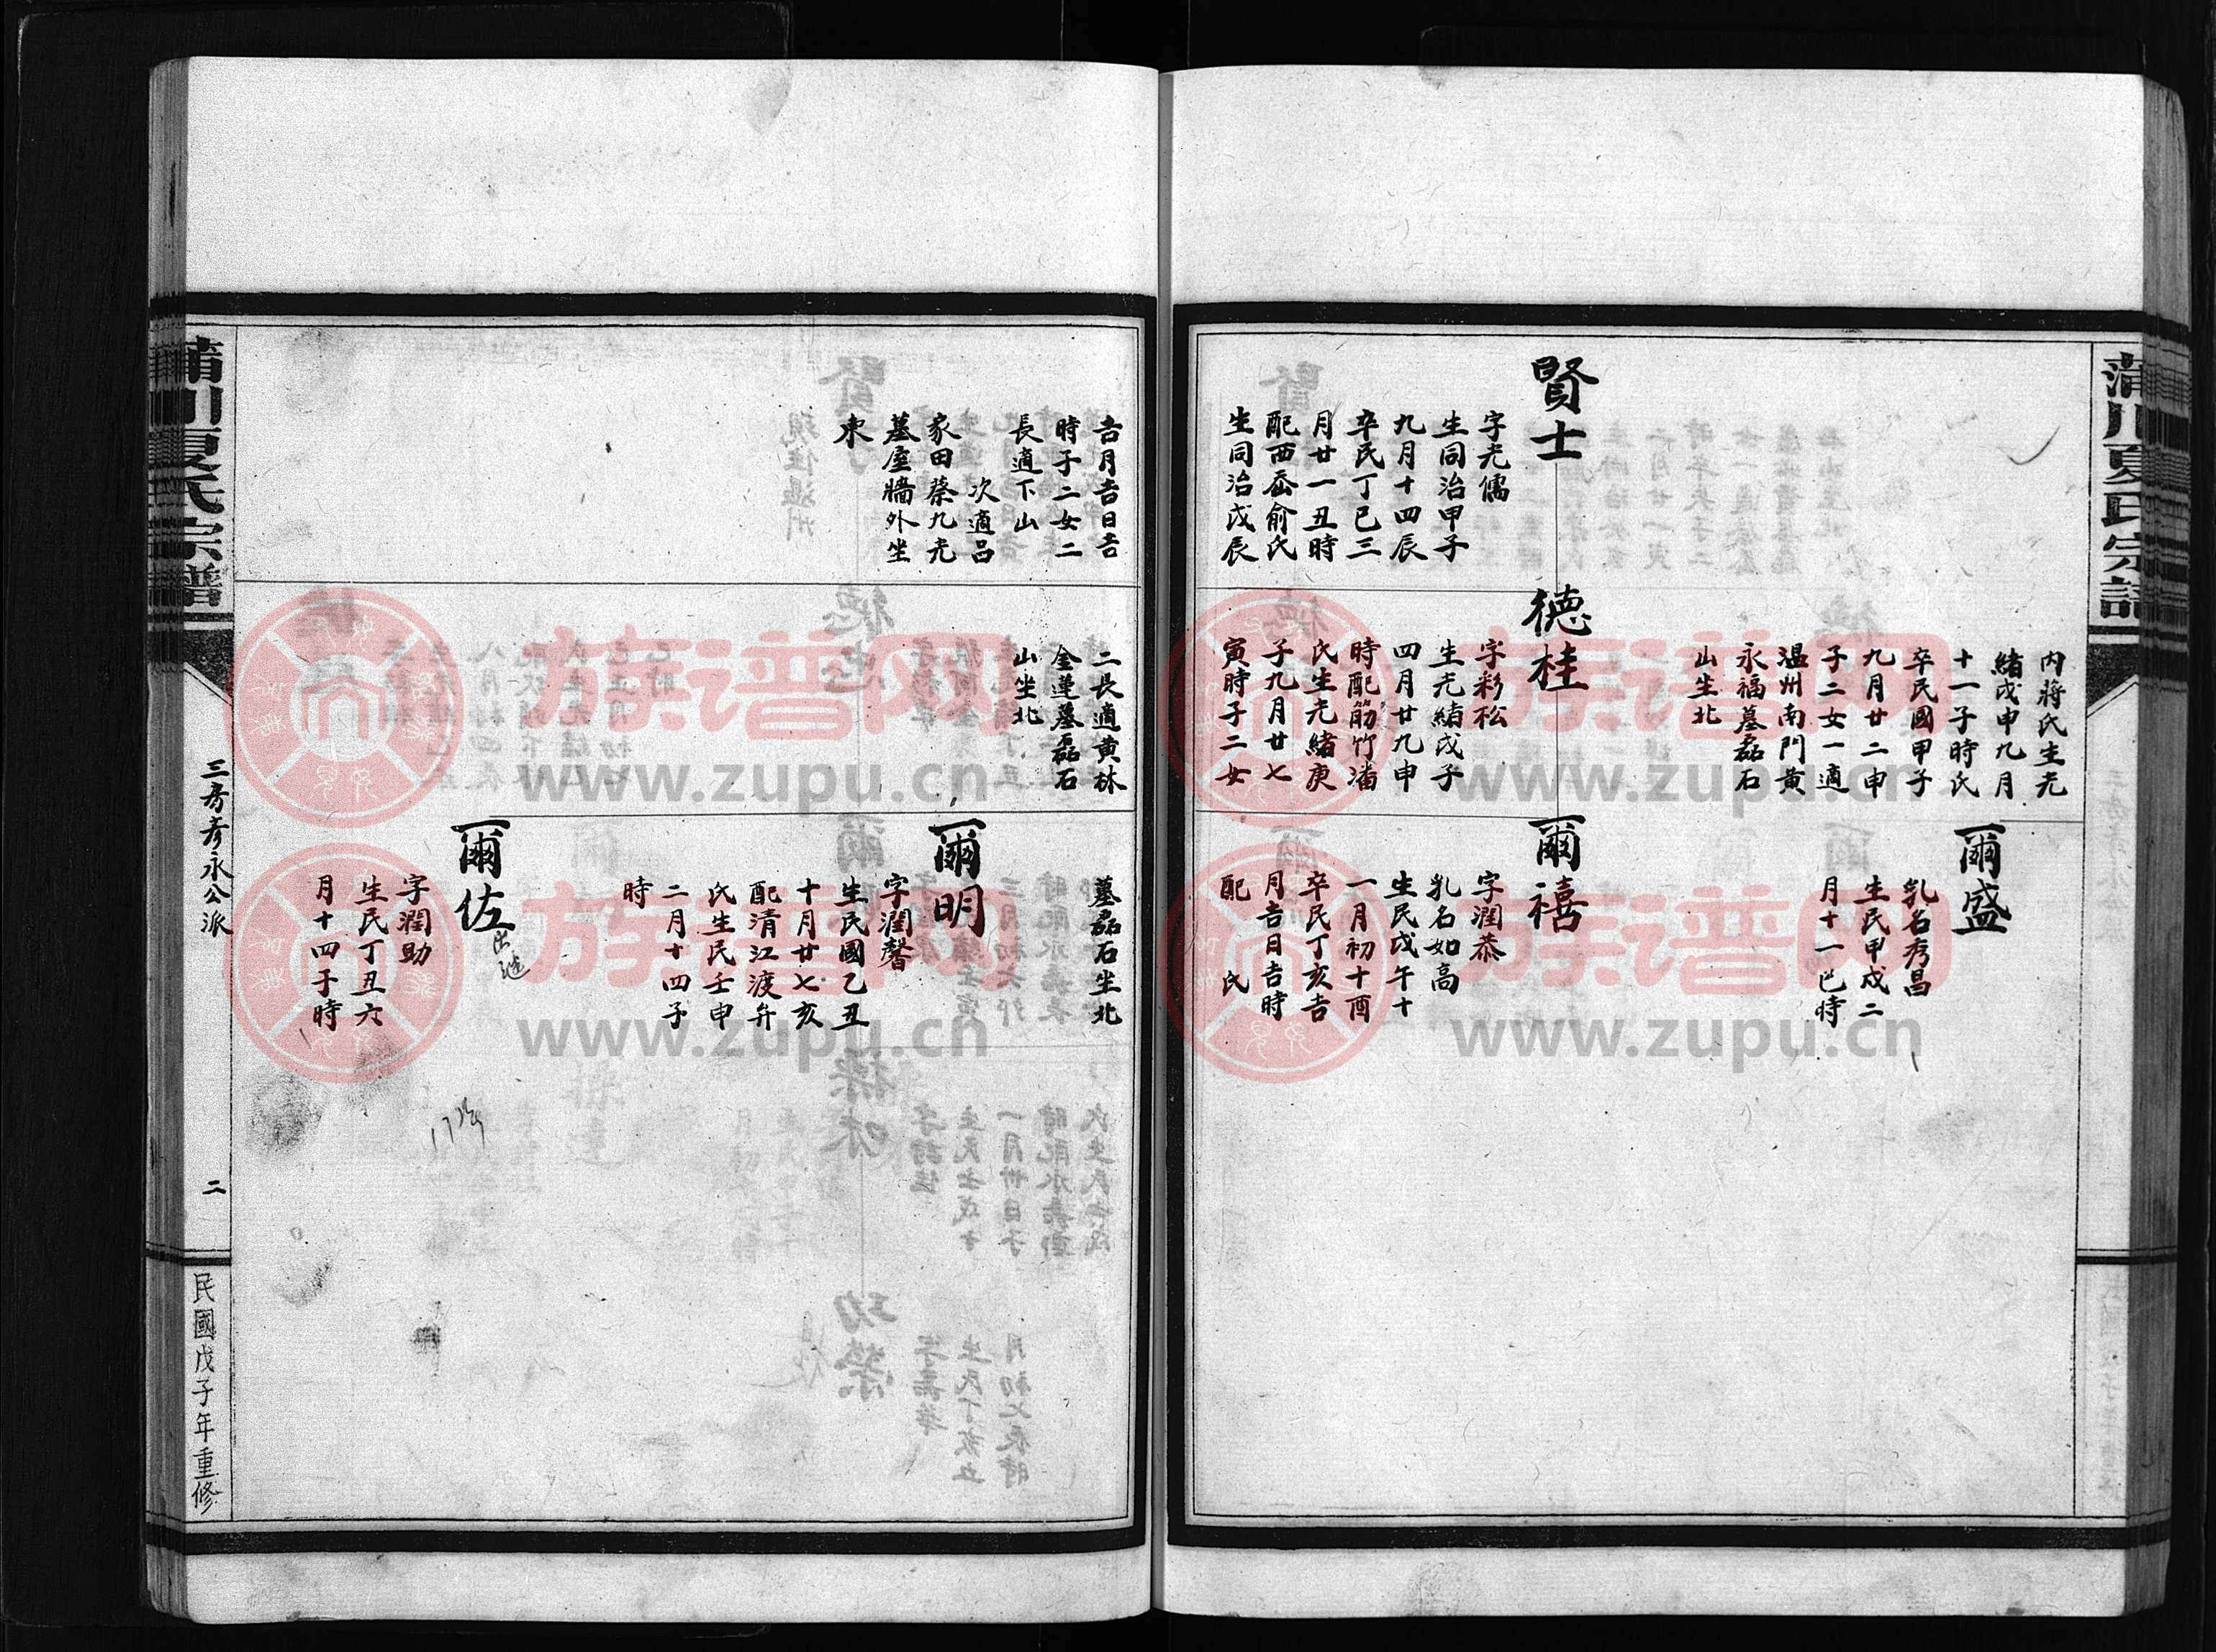 蒲川夏氏宗譜
內蔣氏生光
緒戊申九月
十一子時氏
卒民國甲子
九月廿二申
子二女一適
温州南門黃
永福墓磊石
山坐北
爾盛
乳名秀昌
生民甲戌二
月十一巳時
賢士
字光儒
生同治甲子
九月十四辰
卒民丁巳三
月廿一丑時
配西岙俞氏
生同治戊辰
德桂
字彩松
生光緒戊子
四月廿九申
時配筋竹潘
氏生光緒庚
子九月廿七
寅時子二女
爾禧
字潤恭
乳名如高
生民戊午十
一月初十酉
卒民丁亥吉
月吉日吉時
配　氏
吉月吉日吉
時子二女二
長適下山
次適呂
家田蔡九光
墓屋牆外坐
東
二長適黃林
金蓮墓磊石
山坐北
墓磊石坐北
爾明
字潤馨
生民國乙丑
十月廿七亥
配清江渡弁
氏生民壬申
二月十四子
時
爾佐
出繼
字潤助
生民丁丑六
月十四子時
蒲川夏氏宗譜
三房彥永公派
二
民國戊子年重修
族谱网
www.zupu.cn
族谱网
www.zupu.cn
族谱网
www.zupu.cn
族谱网
www.zupu.cn